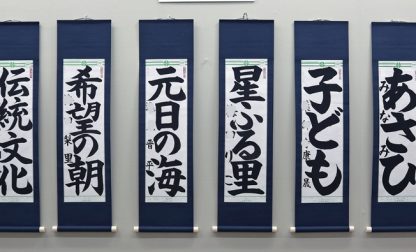 伝統文化
希望の朝
元日の海
星ふる里
子ども
あさひ